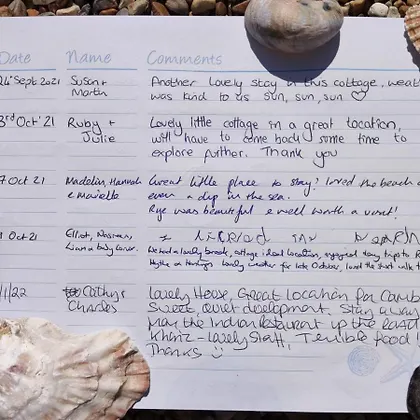 Date Name Comments
24 Sept 2021 Susan + Another lovely stay in this cottage, weat
Martin was kind to us sun, sun, sun ♡
3rd Oct '21 Ruby + Lovely little cottage in a great location,
Julie will have to come back some time to
explore further. Thank you
7 Oct 21 Madelin, Hannah Great little place to stay! loved the beach a
e Marielle even a dip in the sea.
Rye was beautiful & well worth a visit!
Oct 21 Elliot,
We had a lovely break, cottage ideal location, enjoyed day trips to R
Hythe or Hastings lovely weather for late October, loved the
1/22 Cathy + Lovely House, Great Location for Camb
Charles Sweet, quiet development. Stay away
from the Indian restaurant up the road
Khanz - lovely staff, Terrible food!
Thanks